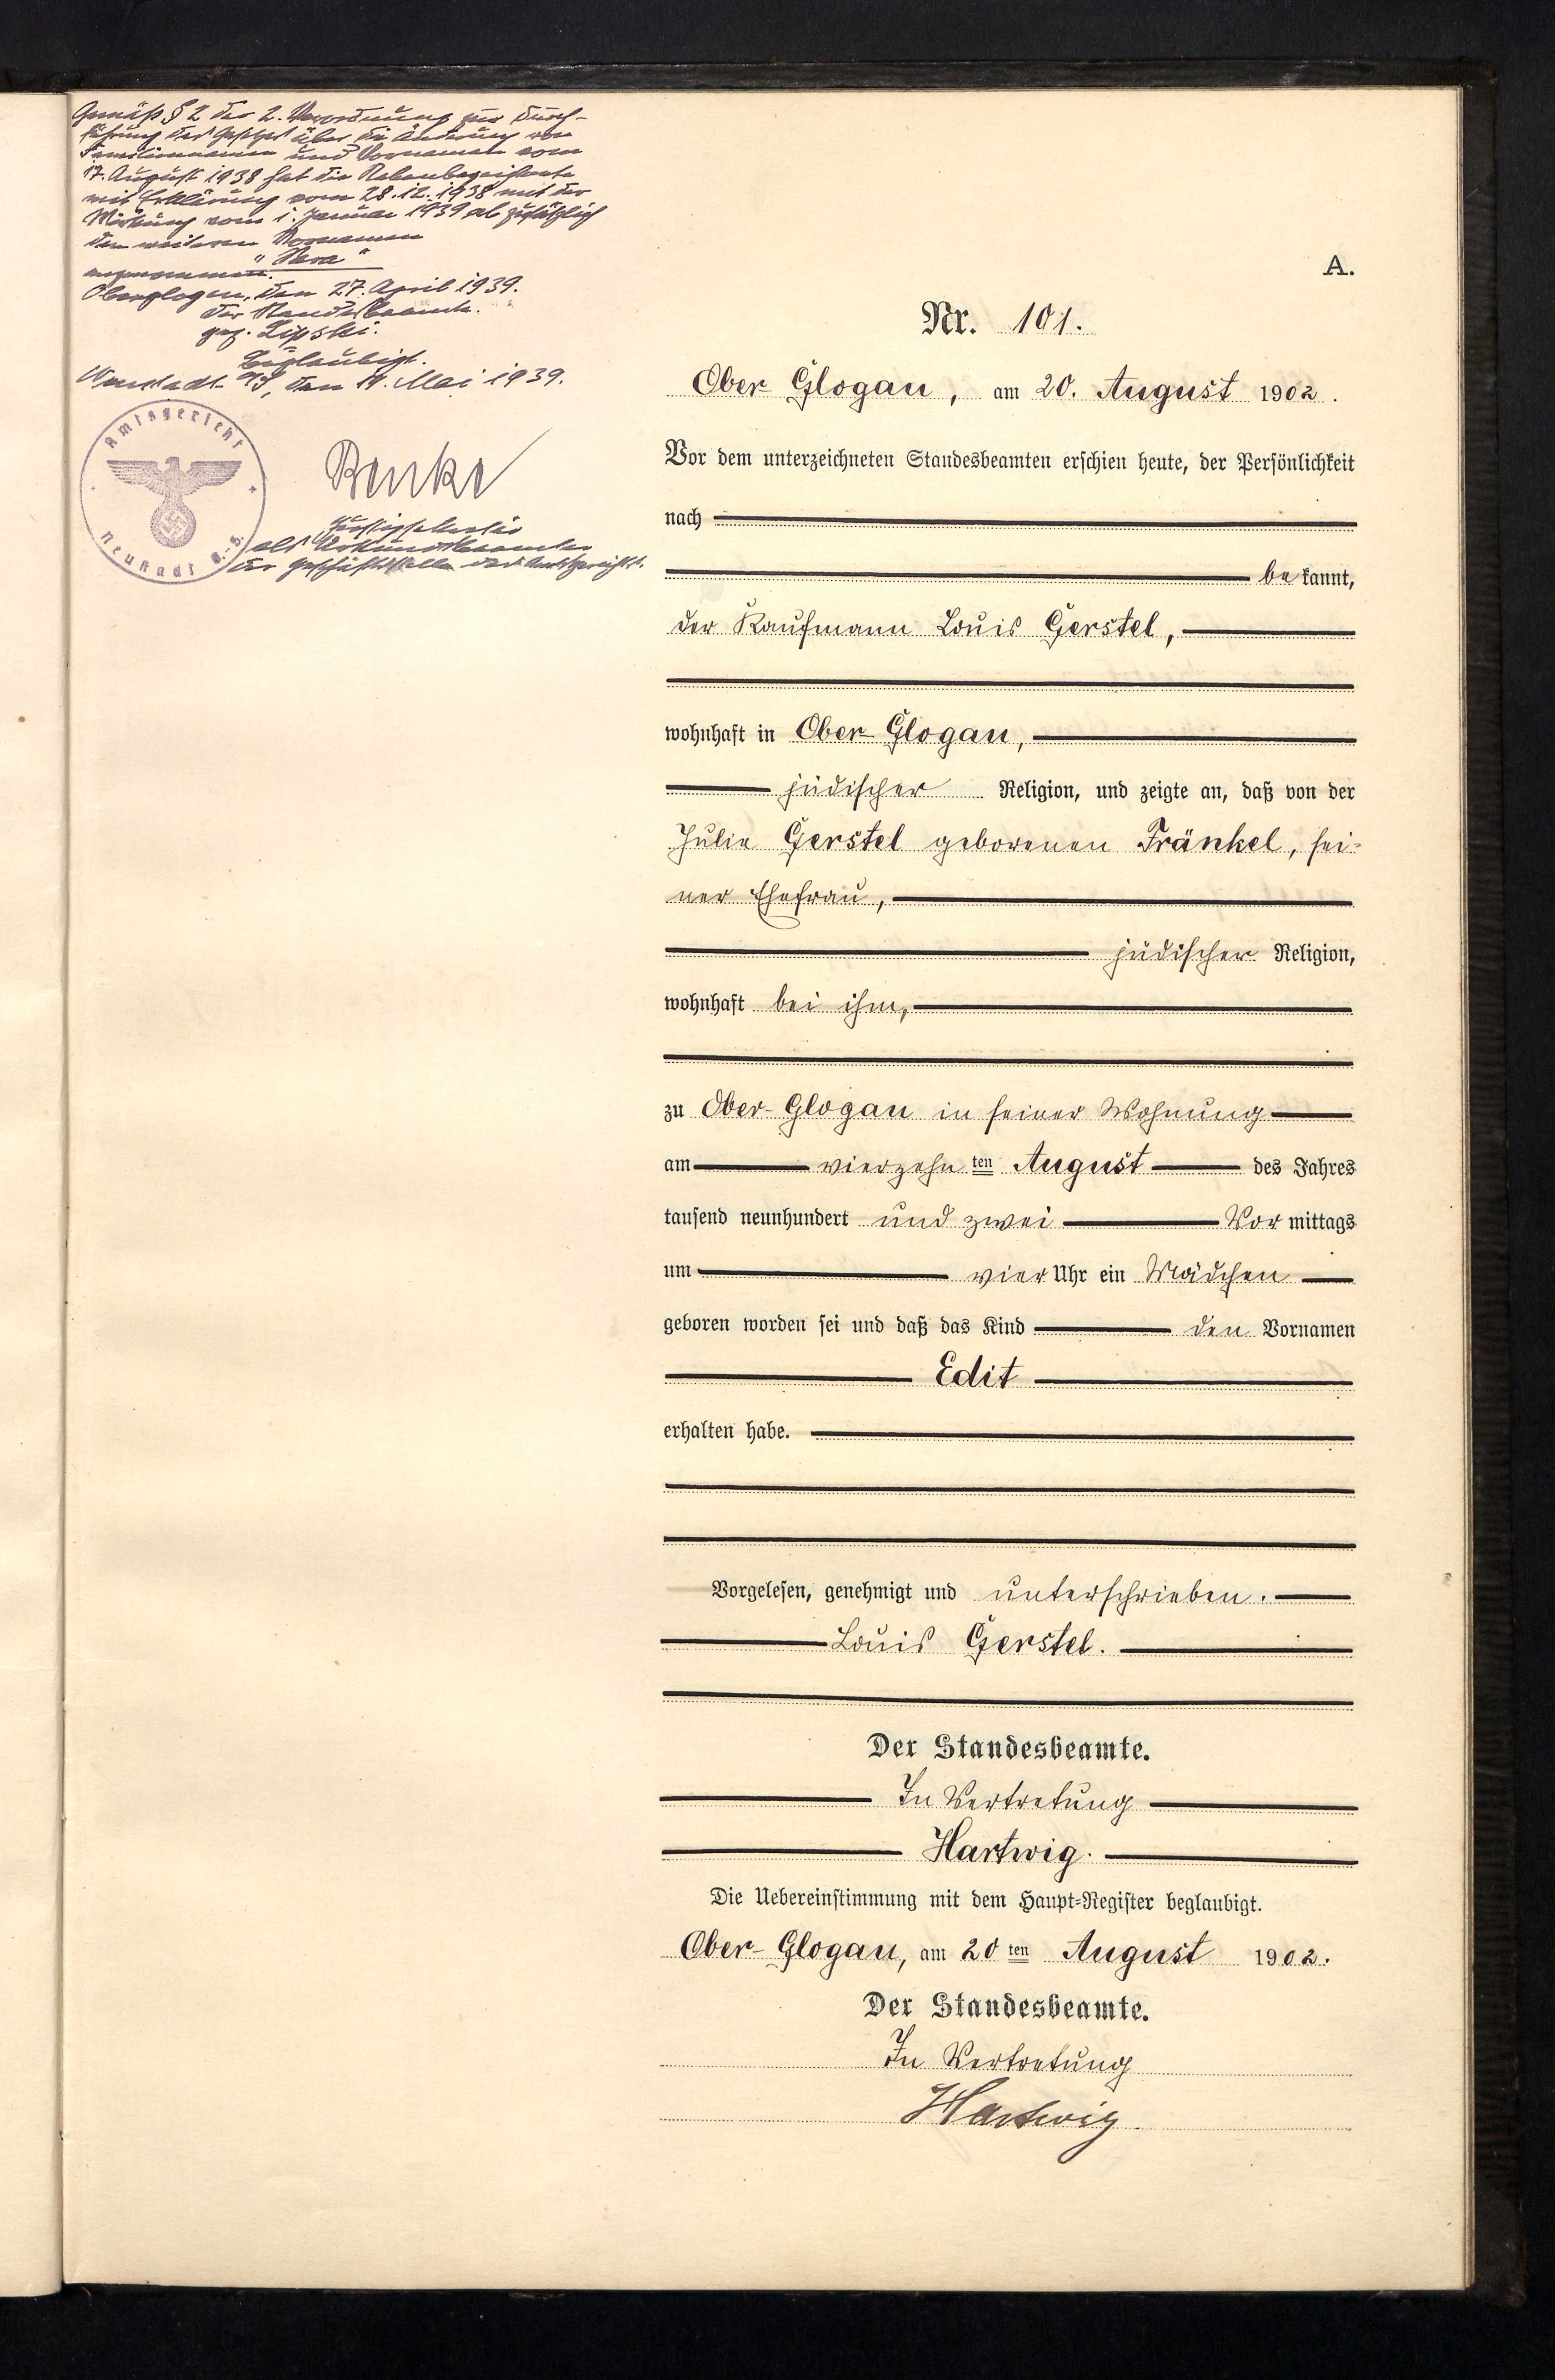 Gemäß § 2 der 2. Verordnung zur Durch-
führung des Gesetzes über die Änderung von
Familiennamen und Vornamen vom
17. August 1938 hat die Nebenbezeichnete
mit Erklärung vom 28.12.1938 mit der
Wirkung vom 1. Januar 1939 ab zusätzlich
den weiteren Vornamen
"Sara"
angenommen.
Oberglogau, den 27. April 1939.
Der Standesbeamte.
gez. Lipski.
Beglaubigt.
Neustadt OS, den 11. Mai 1939.
Amtsgericht
Neustadt O.-S.
Benke
Justizsekretär
als Urkundsbeamter
der Geschäftsstelle des Amtsgerichts.
A.
Nr. 101.
Ober-Glogau, am 20. August 1902.
Vor dem unterzeichneten Standesbeamten erschien heute, der Persönlichkeit
nach
bekannt,
der Kaufmann Louis Gerstel,
wohnhaft in Ober-Glogau,
jüdischer Religion, und zeigte an, daß von der
Julie Gerstel geborenen Fränkel, sei-
ner Ehefrau,
jüdischer Religion,
wohnhaft bei ihm,
zu Ober-Glogau in seiner Wohnung
am vierzehnten August des Jahres
tausend neunhundert und zwei Vormittags
um vier Uhr ein Mädchen
geboren worden sei und daß das Kind den Vornamen
Edit
erhalten habe.
Vorgelesen, genehmigt und unterschrieben.
Louis Gerstel.
Der Standesbeamte.
In Vertretung
Hartwig.
Die Uebereinstimmung mit dem Haupt-Register beglaubigt.
Ober-Glogau, am 20ten August 1902.
Der Standesbeamte.
In Vertretung
Hartwig